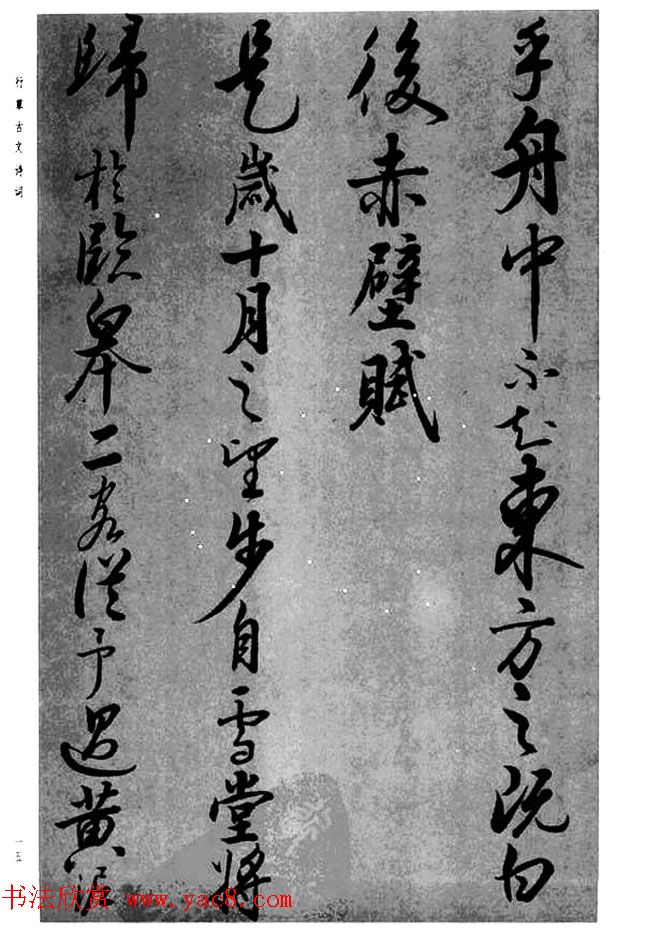 乎舟中不知東方之既白
後赤壁賦
是歲十月之望步自雪堂將
歸於臨皋二客從予過黃泥
行草古文诗词
一五
书法欣赏 www.yac8.com